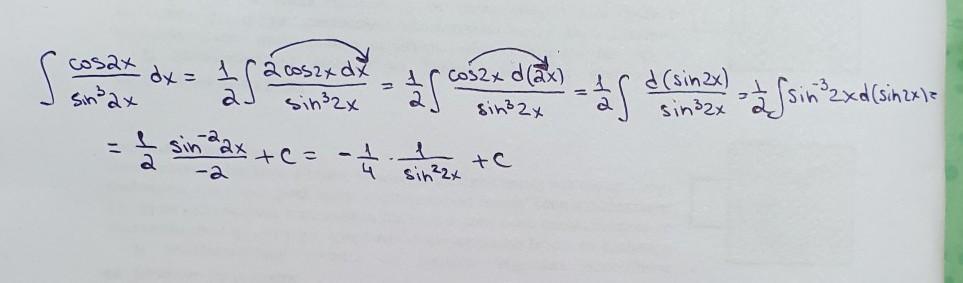 ∫ cos2x / sin³2x dx = 1/2 ∫ 2cos2x dx / sin³2x = 1/2 ∫ cos2x d(2x) / sin³2x = 1/2 ∫ d(sin2x) / sin³2x = 1/2 ∫ sin⁻³2x d(sin2x) =
= 1/2 sin⁻²2x / -2 + C = -1/4 · 1 / sin²2x + C